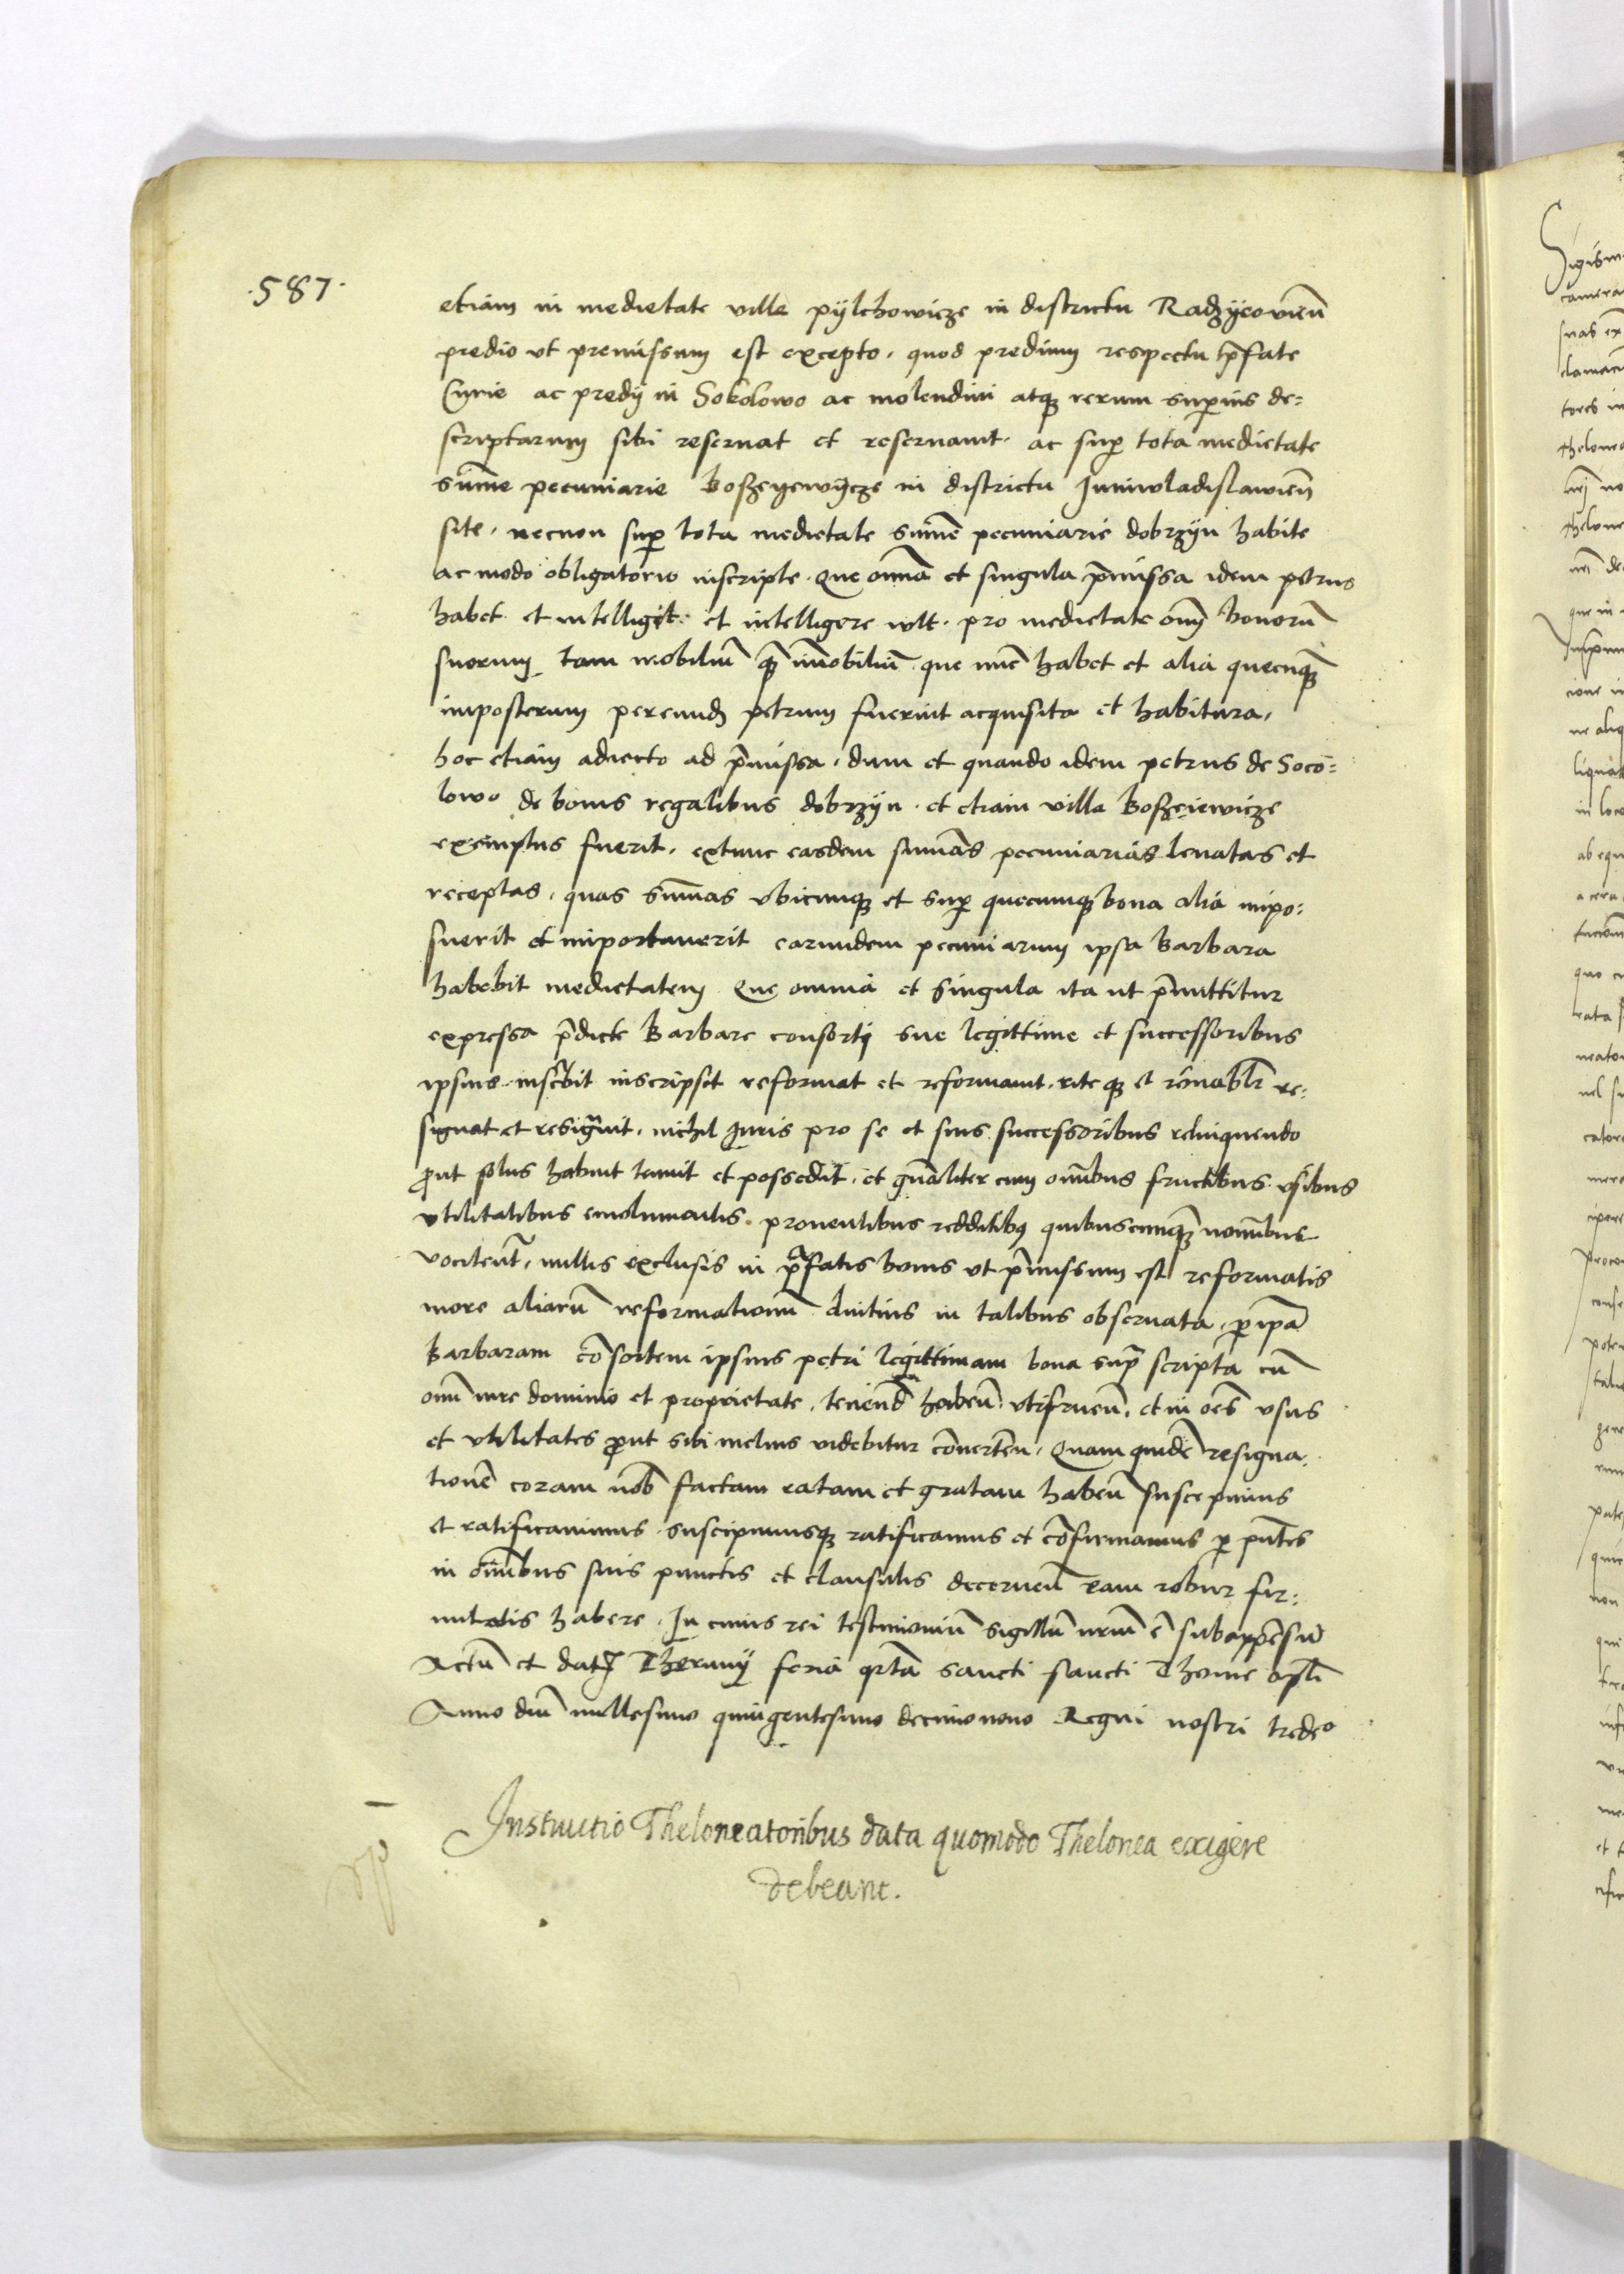 .587.
etiam in medietate ville pylchowicze in districtu Radzyeovieñ
predio vt premissum est excepto, quod predium respectu p̄fate
Curie ac predij in Sokolowo ac molendini atq; rerum superius de=
scriptarum sibi reseruat et reseruauit. ac sup tota medietate
sum̄e pecuniarie Boszeyewycze in districtu Juniwladislauien̄
site, necnon sup tota medietate sum̄e pecuniarie dobrzyn habite
ac modo obligatorio inscripte. Que om̄ia et singula p̄missa idem petrus
habet et intelligit et intelligere vult. pro medietate om̄ bonorū
suorum tam mobiliū q̄ im̄obiliū que nūc habet et alia quecūq̄
imposterum per eund̄ petrum fuerint acquisita et habitura,
hoc etiam adiecto ad p̄missa, dum et quando idem petrus de Soco=
lowo de bonis regalibus dobrzyn. et etiam villa Boszeiewicze
exemptus fuerit, extunc easdem sum̄as pecuniarias leuatas et
receptas, quas sum̄as vbicunq; et sup quecumq; bona alia impo:
suerit et importauerit earundem pecuniarum ipsa Barbara
habebit medietatem Que omnia et singula ita ut p̄mittitur
expressa p̄dicte Barbare consorti sue legittime et successoribus
ipsius inscribit inscripsit reformat et reformauit. rite q; et rōnabl̄r re:
signat et resignauit, nichil Juris pro se et suis successoribus relinquendo
p̄ut solus habuit tenuit et possedit, et gn̄aliter cum om̄ibus fructibus vsibus
vtilitatibus emolumentis. prouentibus redditib; quibuscunq; nominibus
vocitent̄, nullis exclusis in p̄fatis bonis vt p̄missum est reformatis
more aliarū reformationū diutius in talibus obseruata, p ip̄a
Barbaram cōsortem ipsius petri legittimam bona sup̄ scripta cū
om̄i iure dominio et proprietate, tenend̄ habeñ vtifrueñ, et in oēs vsus
et vtilitates p̄ut sibi melius videbitur cōuerteñ, Quam quidē resigna.
tionē coram nob̄ factam ratam et gratam habeñ suscepimus
et ratificauimus. suscipimusq; ratificamus et cōfirmamus p pn̄tes
in om̄ibus suis punctis et clausulis decerneñ eam robur fir:
mitatis habere. In cuius rei testimoniū sigillū nrūm ē subappēsū
Actū et dat̄ Thoruny feria qrta sancti sancti Thome ap̄li
Anno dn̄i millesimo quingentesimo decimonono Regni nostri tredeo
Instructio Theloneatoribus data quomodo Thelonea exigere
debeant.